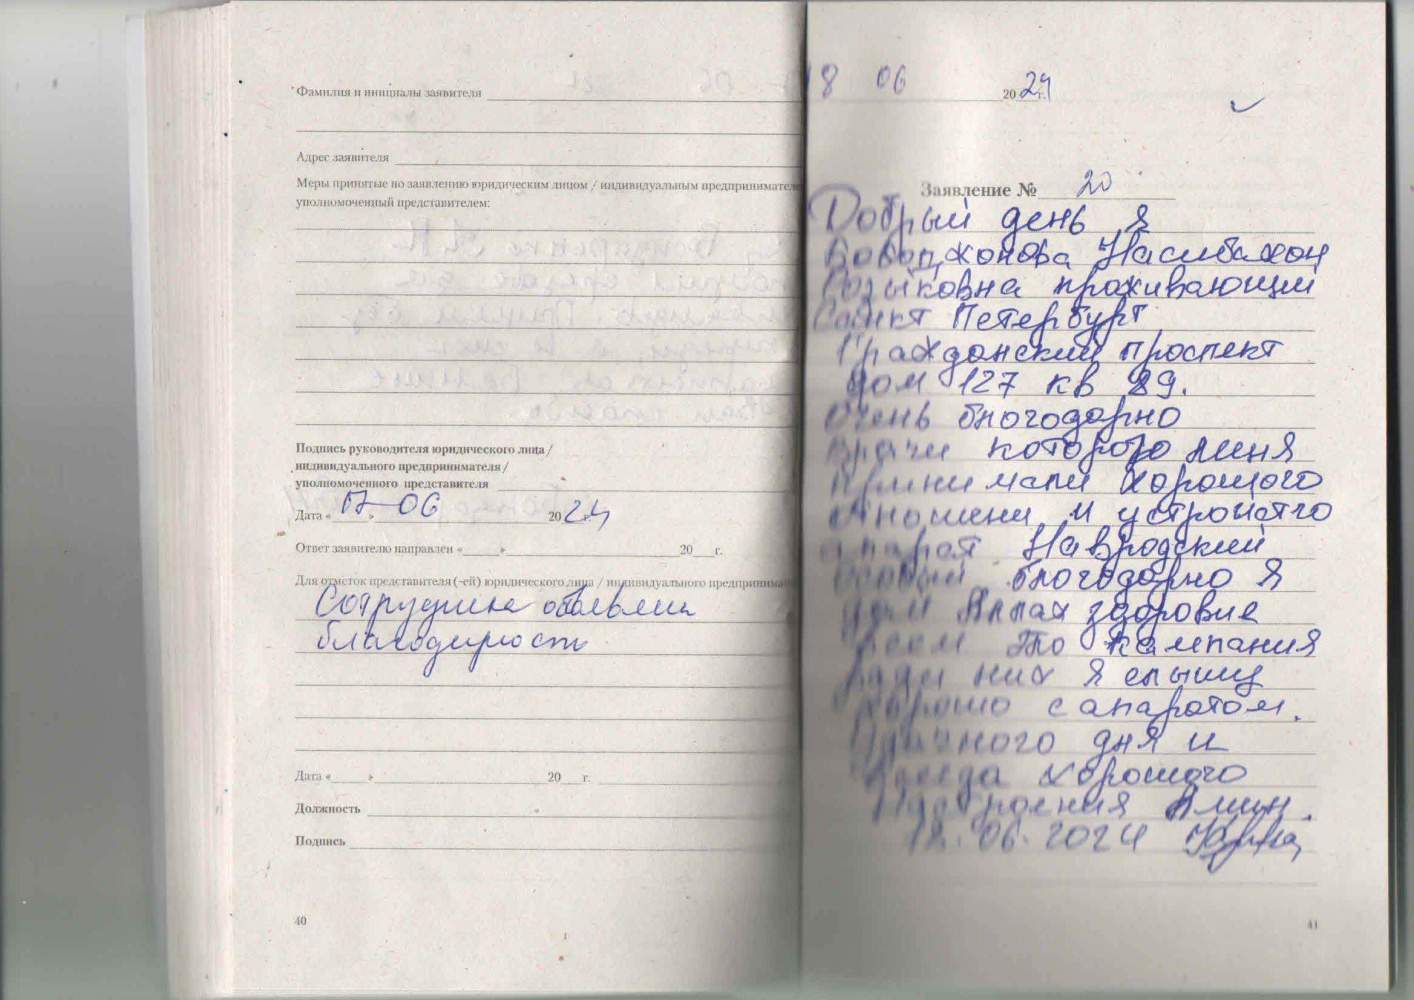 Фамилия и инициалы заявителя
Адрес заявителя
Меры принятые по заявлению юридическим лицом / индивидуальным предпринимателе
уполномоченный представителем:
Подпись руководителя юридического лица/
индивидуального предпринимателя/
уполномоченного представителя
Дата « 17 » 06 2024 г.
Ответ заявителю направлен « » 20 г.
Для отметок представителя (-ей) юридического лица / индивидуального предпринима
Сотруднике объявлена
благодарность
Дата « » 20 г.
Должность
Подпись
40
18 06 2024 г.
Заявление № 20
Добрый день я
Бободжонова Насибахон
Розыковна проживающий
Санкт Петербург
Гражданский проспект
дом 127 кв 89.
Очень благодарно
врачи которого меня
принимали хорошого
и устроиство
апарат Навродский
особый благодарно я
дай Аллах здоровие
всем это кампания
ради них я слышу
хорошо с апаратом.
Удачного дня и
всегда хорошого
Настроения Амин.
18.06.2024
41